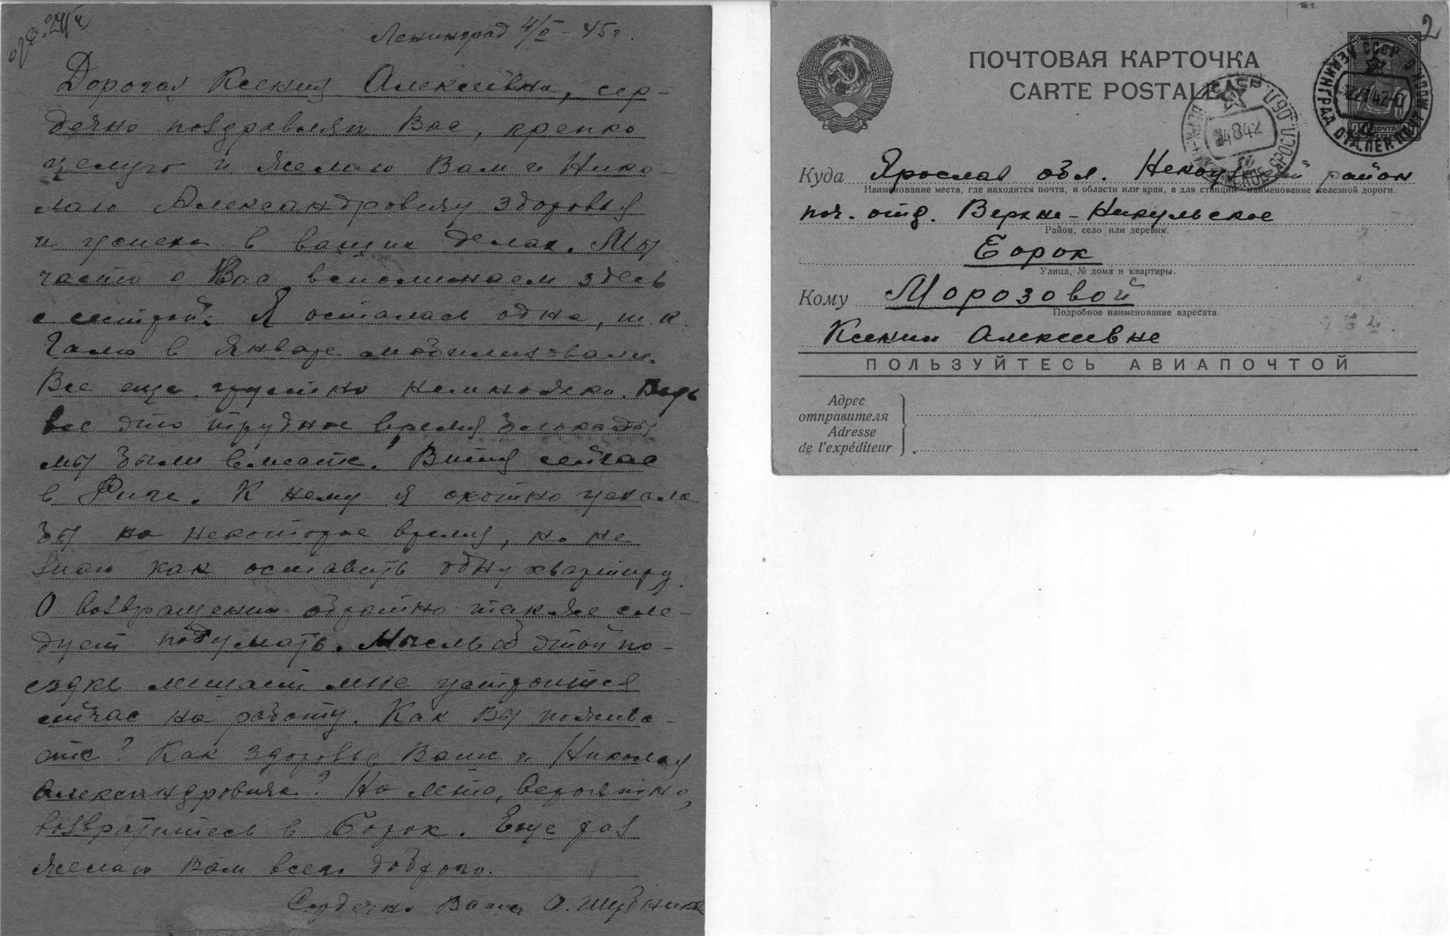 Ленинград 4/II - 45 г.
Дорогая Ксения Алексеевна, сер-
дечно поздравляю Вас, крепко
целую и желаю Вам и Нико-
лаю Александровичу здоровья
и успеха в ваших делах. Мы
часто о Вас вспоминаем здесь
с сестрой. Я осталась одна, т.к.
Галю в январе мобилизовали.
Все еще грустно немножко. Ведь
все это трудное время блокады
мы были вместе. Витя сейчас
в Риге. К нему я охотно уехала
бы на некоторое время, но не
знаю как оставить одну квартиру.
О возвращении обратно также сле-
дует подумать. Мысль об этой по-
ездке мешает мне устроиться
сейчас на работу. Как Вы пожива-
ете? Как здоровье Ваше и Николая
Александровича? На лето, вероятно,
возвратитесь в Борок. Еще раз
желаю Вам всего доброго.
Сердечно Ваша О. Шубник
2
ПОЧТОВАЯ КАРТОЧКА
CARTE POSTALE
Куда Ярослав обл. Некоузский район
Наименование места, где находится почта, и области или края, а для станций наименование железной дороги.
поч. отд. Верхне-Никульское
Район, село или деревня.
Борок
Улица, № дома и квартиры.
Кому Морозовой
Подробное наименование адресата.
Ксении Алексеевне
ПОЛЬЗУЙТЕСЬ АВИАПОЧТОЙ
Адрес
отправителя
Adresse
de l'expéditeur